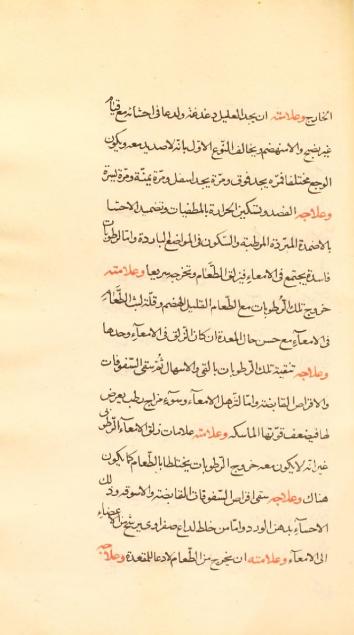 الخارج وعلامته ان يجد العليل دغدغة ولدعا في احشائه مع قيام
غير نضيج ولا منهضم ويخالف النوع الاول بانه لا صديد معه ويكون
الوجع مختلفا فمرة يجد فوق ومرة يجد اسفل ومرة يمنة ومرة يسرة
وعلاجه الفصد وتسكين الحرارة بالمطفيات وتضميد الاحشا
بالاضمدة المبردة المرطبة والسكون في المواضع الباردة واما لرطوبات
فاسدة يجتمع في الامعاء فيزلق الطعام وتخرجه سريعا وعلامته
خروج تلك الرطوبات مع الطعام القليل الهضم وقلة لبث الطعام
في الامعاء مع حسن حال المعدة ان كان الزلق في الامعاء وحدها
وعلاجه تنقية تلك الرطوبات بالقي والاسهال ثم سقي السفوفات
والاقراص القابضة واما لترهل الامعاء وسوء مزاج رطب يعرض
لها فيضعف قوتها الماسكة وعلامته علامات زلق الامعاء الرطوبي
غير انه لا يكون معه خروج الرطوبات يختلطها بالطعام كما يكون
هناك وعلاجه سقي اقراص السفوفات القابضة والاسوقة ودلك
الاحشاء بدهن الورد واما من خلط لداع صفراوي يبرء من الاعضاء
الى الامعاء وعلامته ان يخرج من الطعام لادعا للمقعدة وعلاجه